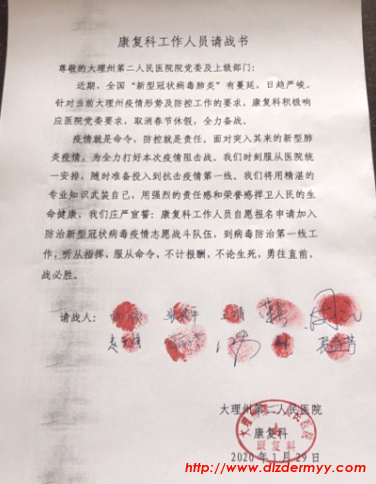 康复科工作人员请战书
尊敬的大理州第二人民医院院党委及上级部门：
近期，全国“新型冠状病毒肺炎”有蔓延，日趋严峻。
针对当前大理州疫情形势及防控工作的要求，康复科积极响
应医院党委要求，取消春节休假，全力备战。
疫情就是命令，防控就是责任。面对突入其来的新型肺
炎疫情，为全力打好本次疫情阻击战。我们时刻服从医院统
一安排，随时准备投入到抗击疫情第一线。我们将用精湛的
专业知识武装自己，用强烈的责任感和荣誉感捍卫人民的生
命健康，我们庄严宣誓：康复科工作人员自愿报名申请加入
防治新型冠状病毒疫情志愿战斗队伍，到病毒防治第一线工
作，听从指挥，服从命令，不计报酬，不论生死，勇往直前，
战必胜。
请战人：
大理州第二人民医院
康复科
康复科
2020年1月29日
http://www.dlzdermyy.com